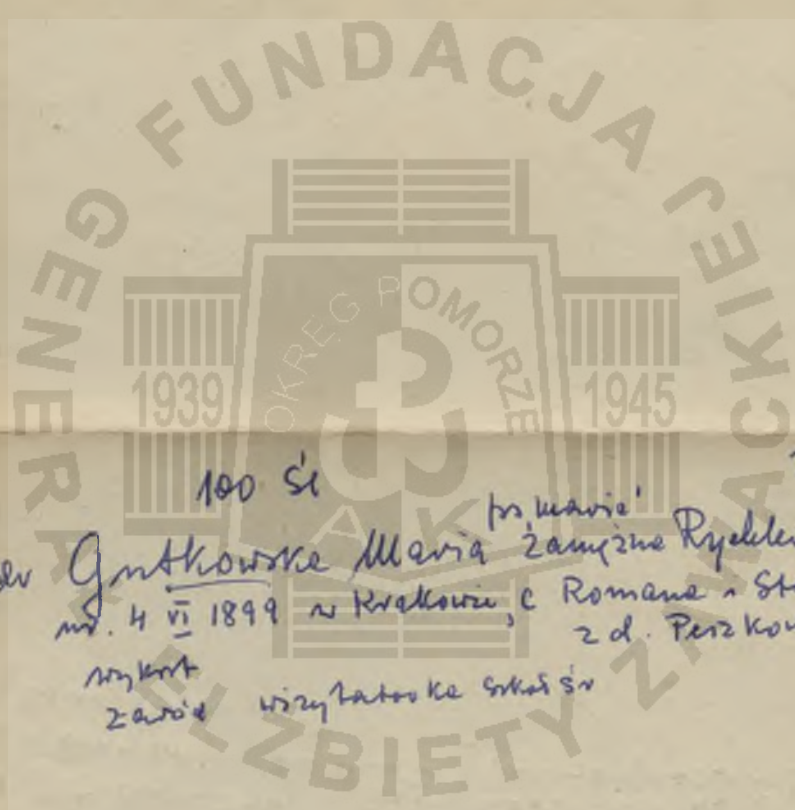 FUNDACJA GENERAŁ ELŻBIETY ZAWACKIEJ
OKRĘG POMORZE
1939 1945
AK
100 Śl
Gutkowska Maria zamężna
ur. 4 VI 1899 w Krakowie, c Romana i St
z d. Peszkow
wykszt
zawód wizytatorka szkół śr